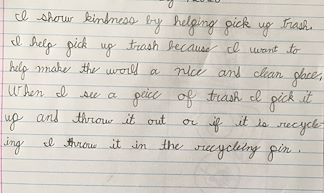 I show kindness by helping pick up trash.
I help pick up trash because I want to
help make the world a nice and clean place.
When I see a peice of trash I pick it
up and throw it out or if it is recycle-
ing I throw it in the recycleing pin.